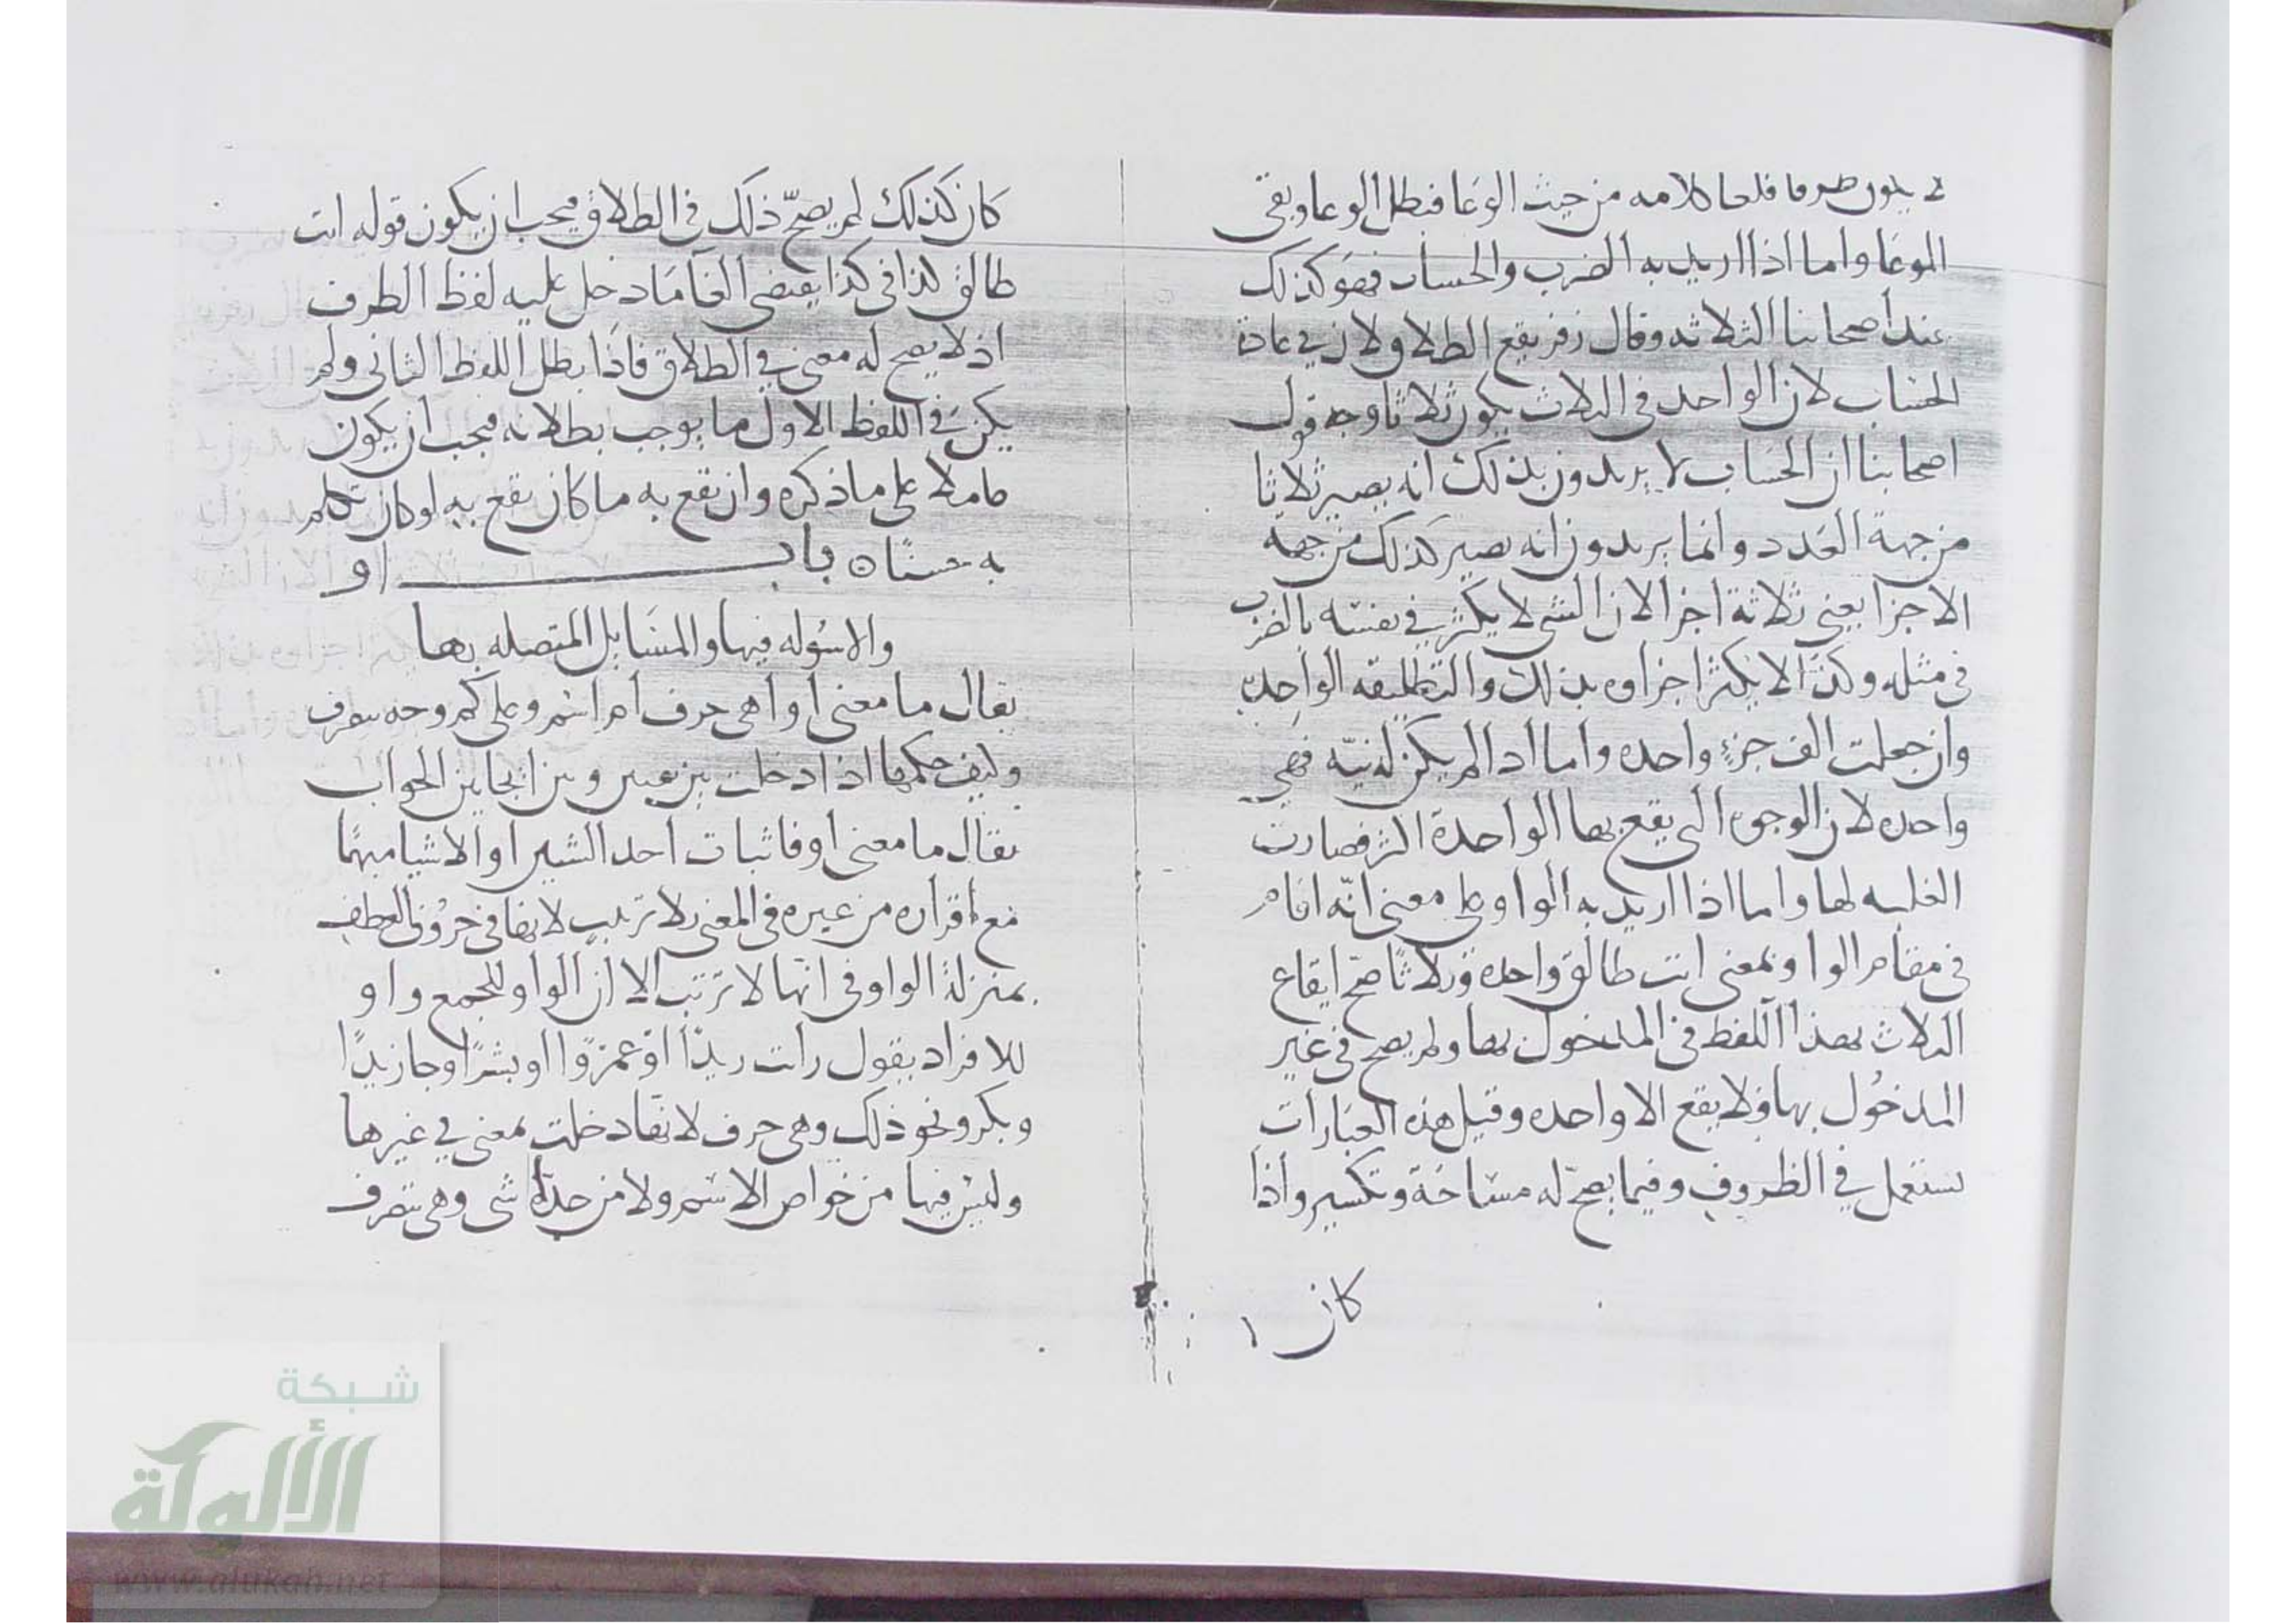 يكون ظرفا فلغا كلامه من حيث الوعا فبطل الوعا وبقى
الموعا واما اذا اريد به الضرب والحساب فهو كذلك
عند أصحابنا الثلاثه وقال زفر يقع الطلاق لان في عادة
الحساب لان الواحد في الثلاث يكون ثلاثا وجه قول
اصحابنا ان الحساب لا يريدون بذلك انه يصير ثلاثا
من جهة العدد وانما يريدون انه يصير كذلك من جهه
الاجزا يعني ثلاثة اجزا لان الشي لا يكثر في نفسه بالضرب
في مثله وكذا لا يكثر اجزاوه بذلك والتطليقه الواحده
وان جعلت الف جزء واحده واما اذا لم يكن له نيّه فهي
واحده لان الوجوه التي يقع بها الواحدة اكثر فصارت
الغلبه لها واما اذا اريد به الواو على معنى انّه اقام
في مقام الواو بمعنى انت طالق واحده وثلاثا صح ايقاع
الثلاث بهذا اللفظ في المدخول بها ولم يصح في غير
المدخول بها ولا يقع الا واحده وقيل هذه العبارات
تستعمل في الظروف وفيما يصحّ له مساحة وتكسير واذا
كان
كان كذلك لم يصحّ ذلك في الطلاق فيجب ان يكون قوله انت
طالق كذا في كذا يقتضي الغا ما دخل عليه لفظ الظرف
اذ لا يصح له معنى في الطلاق فاذا بطل اللفظ الثاني ولم
يكن في اللفظ الاول ما يوجب بطلانه فيجب ان يكون
عاملا على ما ذكره وان يقع به ما كان يقع به لو كان تكلم
به باب او
والاسوله فيها والمسايل المتصله بها
يقال ما معنى أو اهي حرف ام اسم وعلى كم وجه تتصرف
وكيف حكمها اذا دخلت بين وبين الجواب
يقال ما معنى أو فاثبات احد الشيين أو الاشيا مبهمًا
مع افراده من غيره في المعنى بلا ترتيب لانها في حروف العطف
بمنزلة الواو في انّها لا ترتب الا ان الواو للجمع واو
للافراد يقول رأيت زيدًا أو عمرًوا او بشرًا وجا زيدًا
وبكر ونحو ذلك وهي حرف لانها دخلت بمعنى في غيرها
وليس فيها من خواص الاسم ولا من حدّه شي وهي تتصرف
شبكة
الألوكة
www.alukah.net